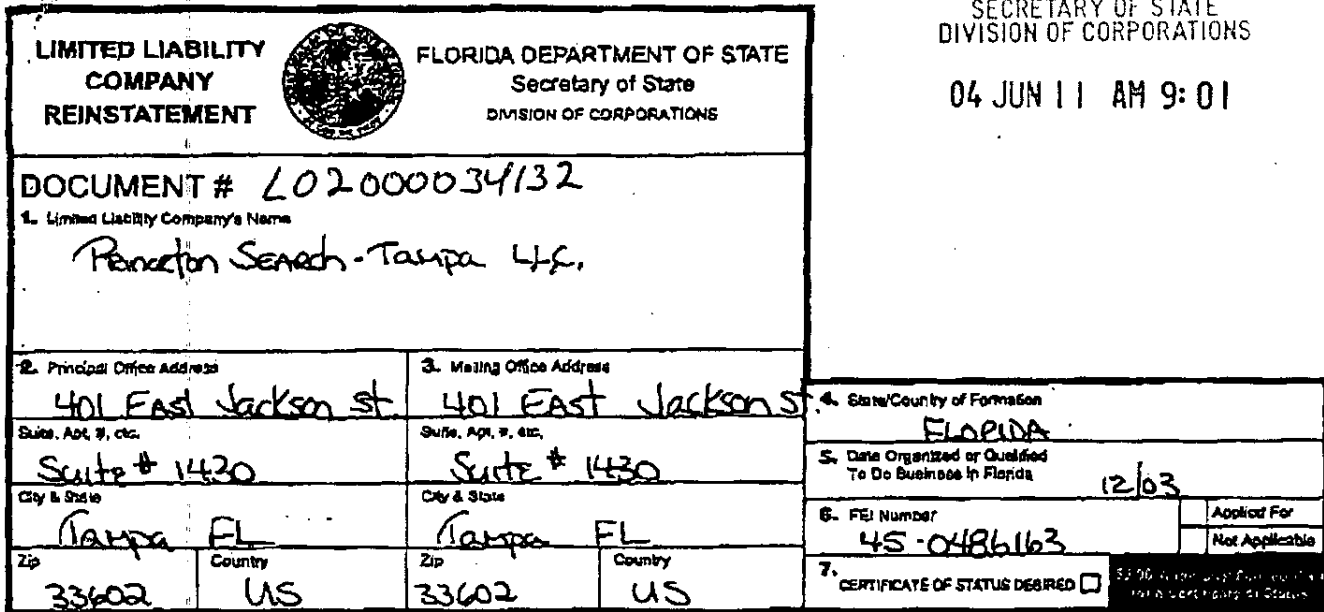 SECRETARY OF STATE
DIVISION OF CORPORATIONS
04 JUN 11 AM 9:01
LIMITED LIABILITY
COMPANY
REINSTATEMENT
FLORIDA DEPARTMENT OF STATE
Secretary of State
DIVISION OF CORPORATIONS
DOCUMENT # L02000034132
1. Limited Liability Company's Name
Princeton Search-Tampa LLC.
2. Principal Office Address
401 East Jackson St.
Suite, Apt. #, etc.
Suite # 1430
City & State
Tampa FL
Zip
33602
Country
US
3. Mailing Office Address
401 East Jackson St
Suite, Apt. #, etc.
Suite # 1430
City & State
Tampa FL
Zip
33602
Country
US
4. State/Country of Formation
FLORIDA
5. Date Organized or Qualified
To Do Business in Florida
12/03
6. FEI Number
45-0486163
Applied For
Not Applicable
7. CERTIFICATE OF STATUS DESIRED